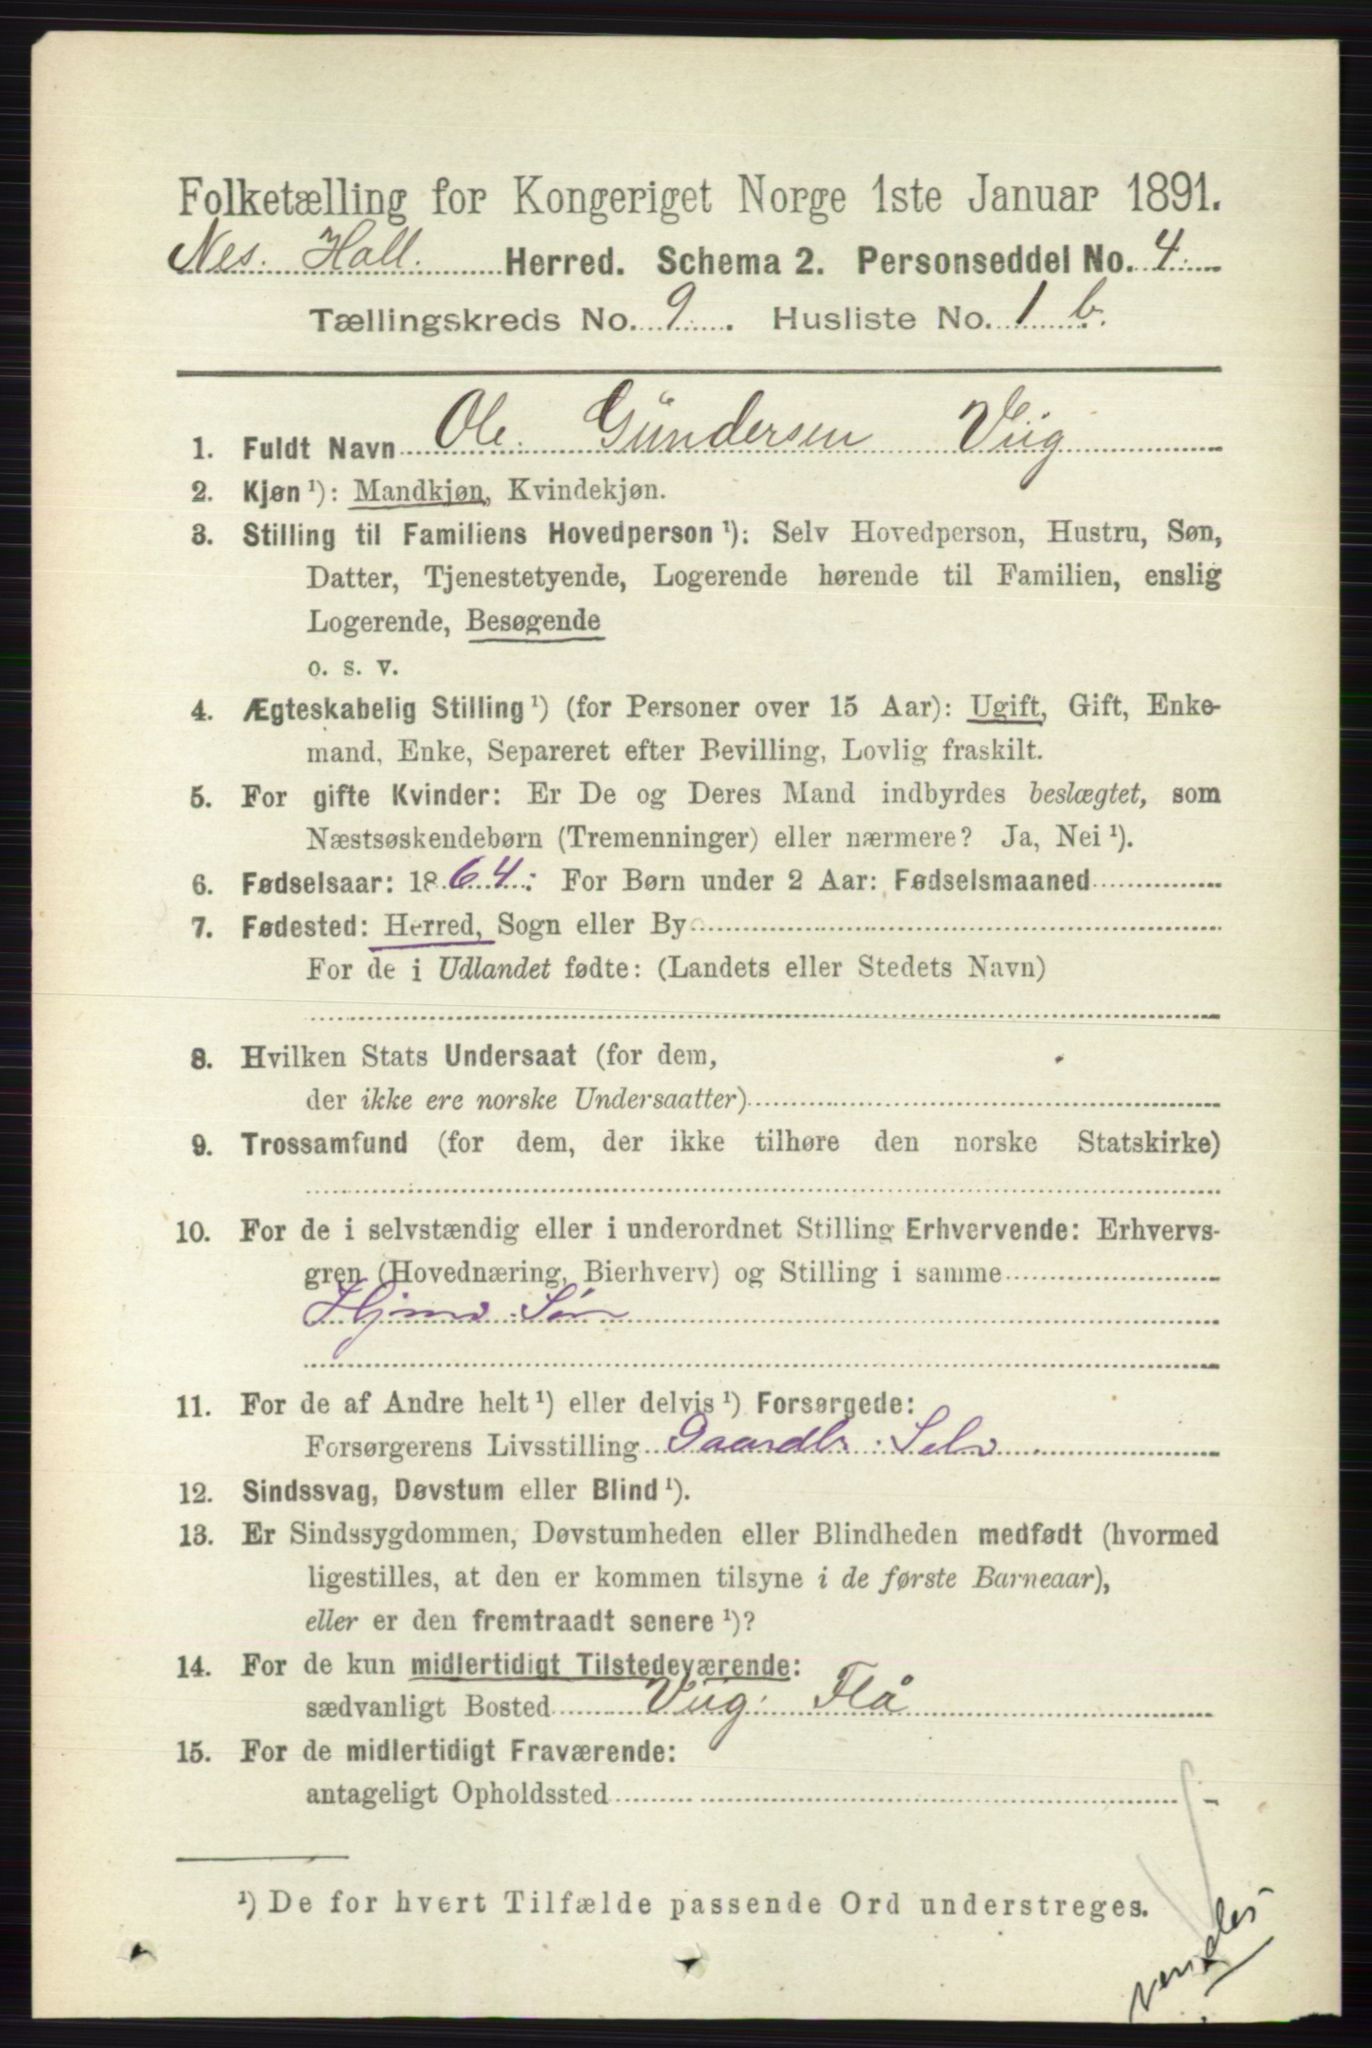 Folketælling for Kongeriget Norge 1ste Januar 1891.
Nes. Hall. Herred. Schema 2. Personseddel No. 4
Tællingskreds No. 9. Husliste No. 1 b.
1. Fuldt Navn Ole Gündersen Viig
2. Kjøn ¹): Mandkjøn, Kvindekjøn.
3. Stilling til Familiens Hovedperson ¹): Selv Hovedperson, Hustru, Søn,
Datter, Tjenestetyende, Logerende hørende til Familien, enslig
Logerende, Besøgende
o. s. v.
4. Ægteskabelig Stilling ¹) (for Personer over 15 Aar): Ugift, Gift, Enke-
mand, Enke, Separeret efter Bevilling, Lovlig fraskilt.
5. For gifte Kvinder: Er De og Deres Mand indbyrdes beslægtet, som
Næstsøskendebørn (Tremenninger) eller nærmere? Ja, Nei ¹).
6. Fødselsaar: 1864: For Børn under 2 Aar: Fødselsmaaned
7. Fødested: Herred, Sogn eller By
For de i Udlandet fødte: (Landets eller Stedets Navn)
8. Hvilken Stats Undersaat (for dem,
der ikke ere norske Undersaatter)
9. Trossamfund (for dem, der ikke tilhøre den norske Statskirke)
10. For de i selvstændig eller i underordnet Stilling Erhvervende: Erhvervs-
gren (Hovednæring, Bierhverv) og Stilling i samme
Søn
11. For de af Andre helt ¹) eller delvis ¹) Forsørgede:
Forsørgerens Livsstilling Gaardbr. Selv
12. Sindssvag, Døvstum eller Blind ¹).
13. Er Sindssygdommen, Døvstumheden eller Blindheden medfødt (hvormed
ligestilles, at den er kommen tilsyne i de første Barneaar),
eller er den fremtraadt senere ¹)?
14. For de kun midlertidigt Tilstedeværende:
sædvanligt Bosted Viig: Flå
15. For de midlertidigt Fraværende:
antageligt Opholdssted
¹) De for hvert Tilfælde passende Ord understreges.
vendes